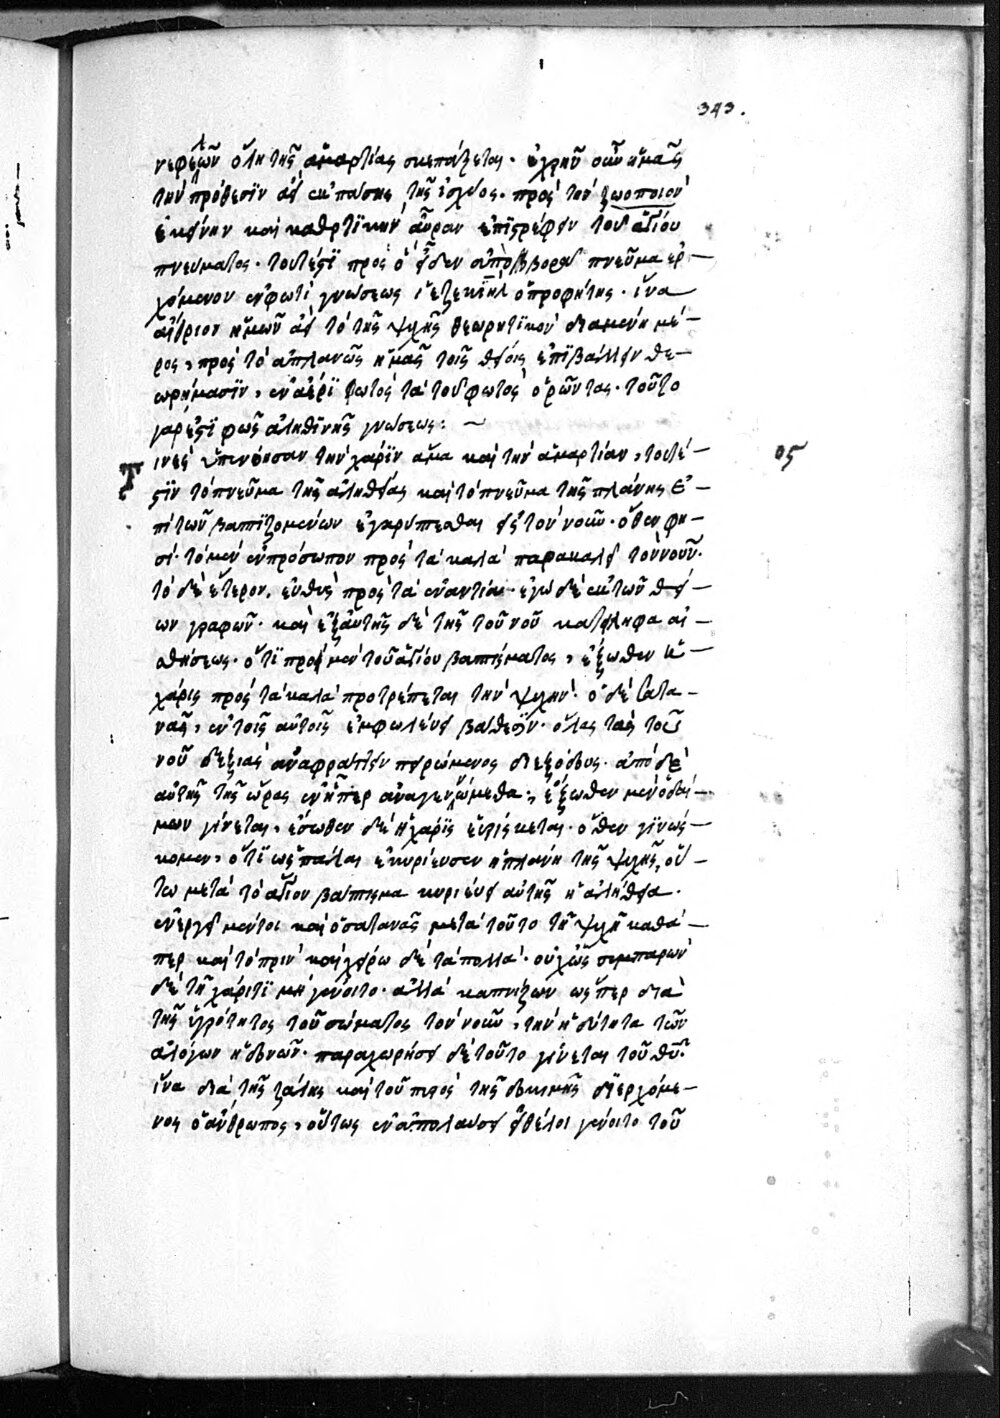 343.
νεφελῶν ὅλη τῆς ἁμαρτίας σκεπάζεται. ἐχρῆν οὖν ἡμᾶς
τὴν πρόθεσϊν ἀεὶ ἐκ πάσης τῆς ἰσχύος. πρὸς τὴν ζωοποιὸν
ἐκείνην καὶ καθαρτϊκὴν αὔραν ἐπϊστρέφειν τοῦ ἁγίου
πνεύματος. τουτέστϊ πρὸς ὃ εἶδεν ἀπὸ βορρᾶ πνεῦμα ἐρ-
χόμενον ἐν φωτὶ γνώσεως ἰεζεκιὴλ ὁ προφήτης. ἵνα
αἴθριον ἡμῶν ἀεὶ τὸ τῆς ψυχῆς θεωρητϊκὸν διαμένη μέ-
ρος, πρὸς τὸ ἀπλανῶς ἡμᾶς τοῖς θείοις ἐπϊβάλλειν θε-
ωρήμασϊν, ἐν ἀέρϊ φωτὸς τὰ τοῦ φωτὸς ὁρῶντας. τοῦτο
γάρ ἐστϊ φῶς ἀληθϊνῆς γνώσεως: ~
Τινὲς ὑπενόησαν τὴν χάρϊν ἅμα καὶ τὴν ἁμαρτίαν, τουτέ-
στϊν τὸ πνεῦμα τῆς ἀληθείας καὶ τὸ πνεῦμα τῆς πλάνης ἐ-
πὶ τῶν βαπτϊζομένων ἐγκρύπτεσθαι εἰς τὸν νοῦν. ὅθεν φη-
σὶ. τὸ μὲν ἓν πρόσωπον πρὸς τὰ καλὰ παρακαλεῖ τὸν νοῦν.
τὸ δὲ ἕτερον, εὐθὺς πρὸς τὰ ἐναντία. ἐγὼ δὲ ἐκ τῶν θεί-
ων γραφῶν. καὶ ἐξ αὐτῆς δὲ τῆς τοῦ νοῦ κατείληφα αἰ-
σθήσεως. ὅτϊ πρὸ μὲν τοῦ ἁγίου βαπτίσματος, ἔξωθεν ἡ
χάρις πρὸς τὰ καλὰ προτρέπεται τὴν ψυχὴν. ὁ δὲ σατα-
νᾶς, ἐν τοῖς αὐτοῖς ἐμφωλεύει βαθέσϊν. ὅλας τὰς τοῦ
νοῦ δεξϊὰς ἀναφράττειν πειρώμενος διεξόδους. ἀπὸ δὲ
αὐτῆς τῆς ὥρας ἐν ᾗπερ ἀναγεννώμεθα, ἔξωθεν μὲν ὁ δαί-
μων γίνεται, ἔσωθεν δὲ ἡ χάρϊς εὑρίσκεται. ὅθεν γϊνώς-
κομεν, ὅτϊ ὥσπερ πάλαι ἐκυρίευσεν ἡ πλάνη τῆς ψυχῆς, οὕ-
τω μετὰ τὸ ἅγιον βάπτισμα κυριεύει αὐτῆς ἡ ἀλήθεια.
ἐνεργεῖ μέντοι καὶ ὁ σατανᾶς μετὰ τοῦτο τῆ ψυχῆ καθά-
περ καὶ τὸ πρὶν καὶ χείρω δὲ τὰ πολλὰ. οὐχ ὡς συμπαρὼν
δὲ τῆ χάριτϊ μὴ γένοιτο. ἀλλὰ καπνίζων ὥσπερ διὰ
τῆς ὑγρότητος τοῦ σώματος τὸν νοῦν, τὴν ἡδύτητα τῶν
ἀλόγων ἡδονῶν. παραχωρήσει δὲ τοῦτο γίνεται τοῦ θῦ.
ἵνα διὰ τῆς ζάλης καὶ τοῦ πυρὸς τῆς δοκιμῆς διερχόμε-
νος ὁ ἄνθρωπος, οὕτως ἐν ἀπολαύσει εἰ θέλοι γένοιτο τοῦ